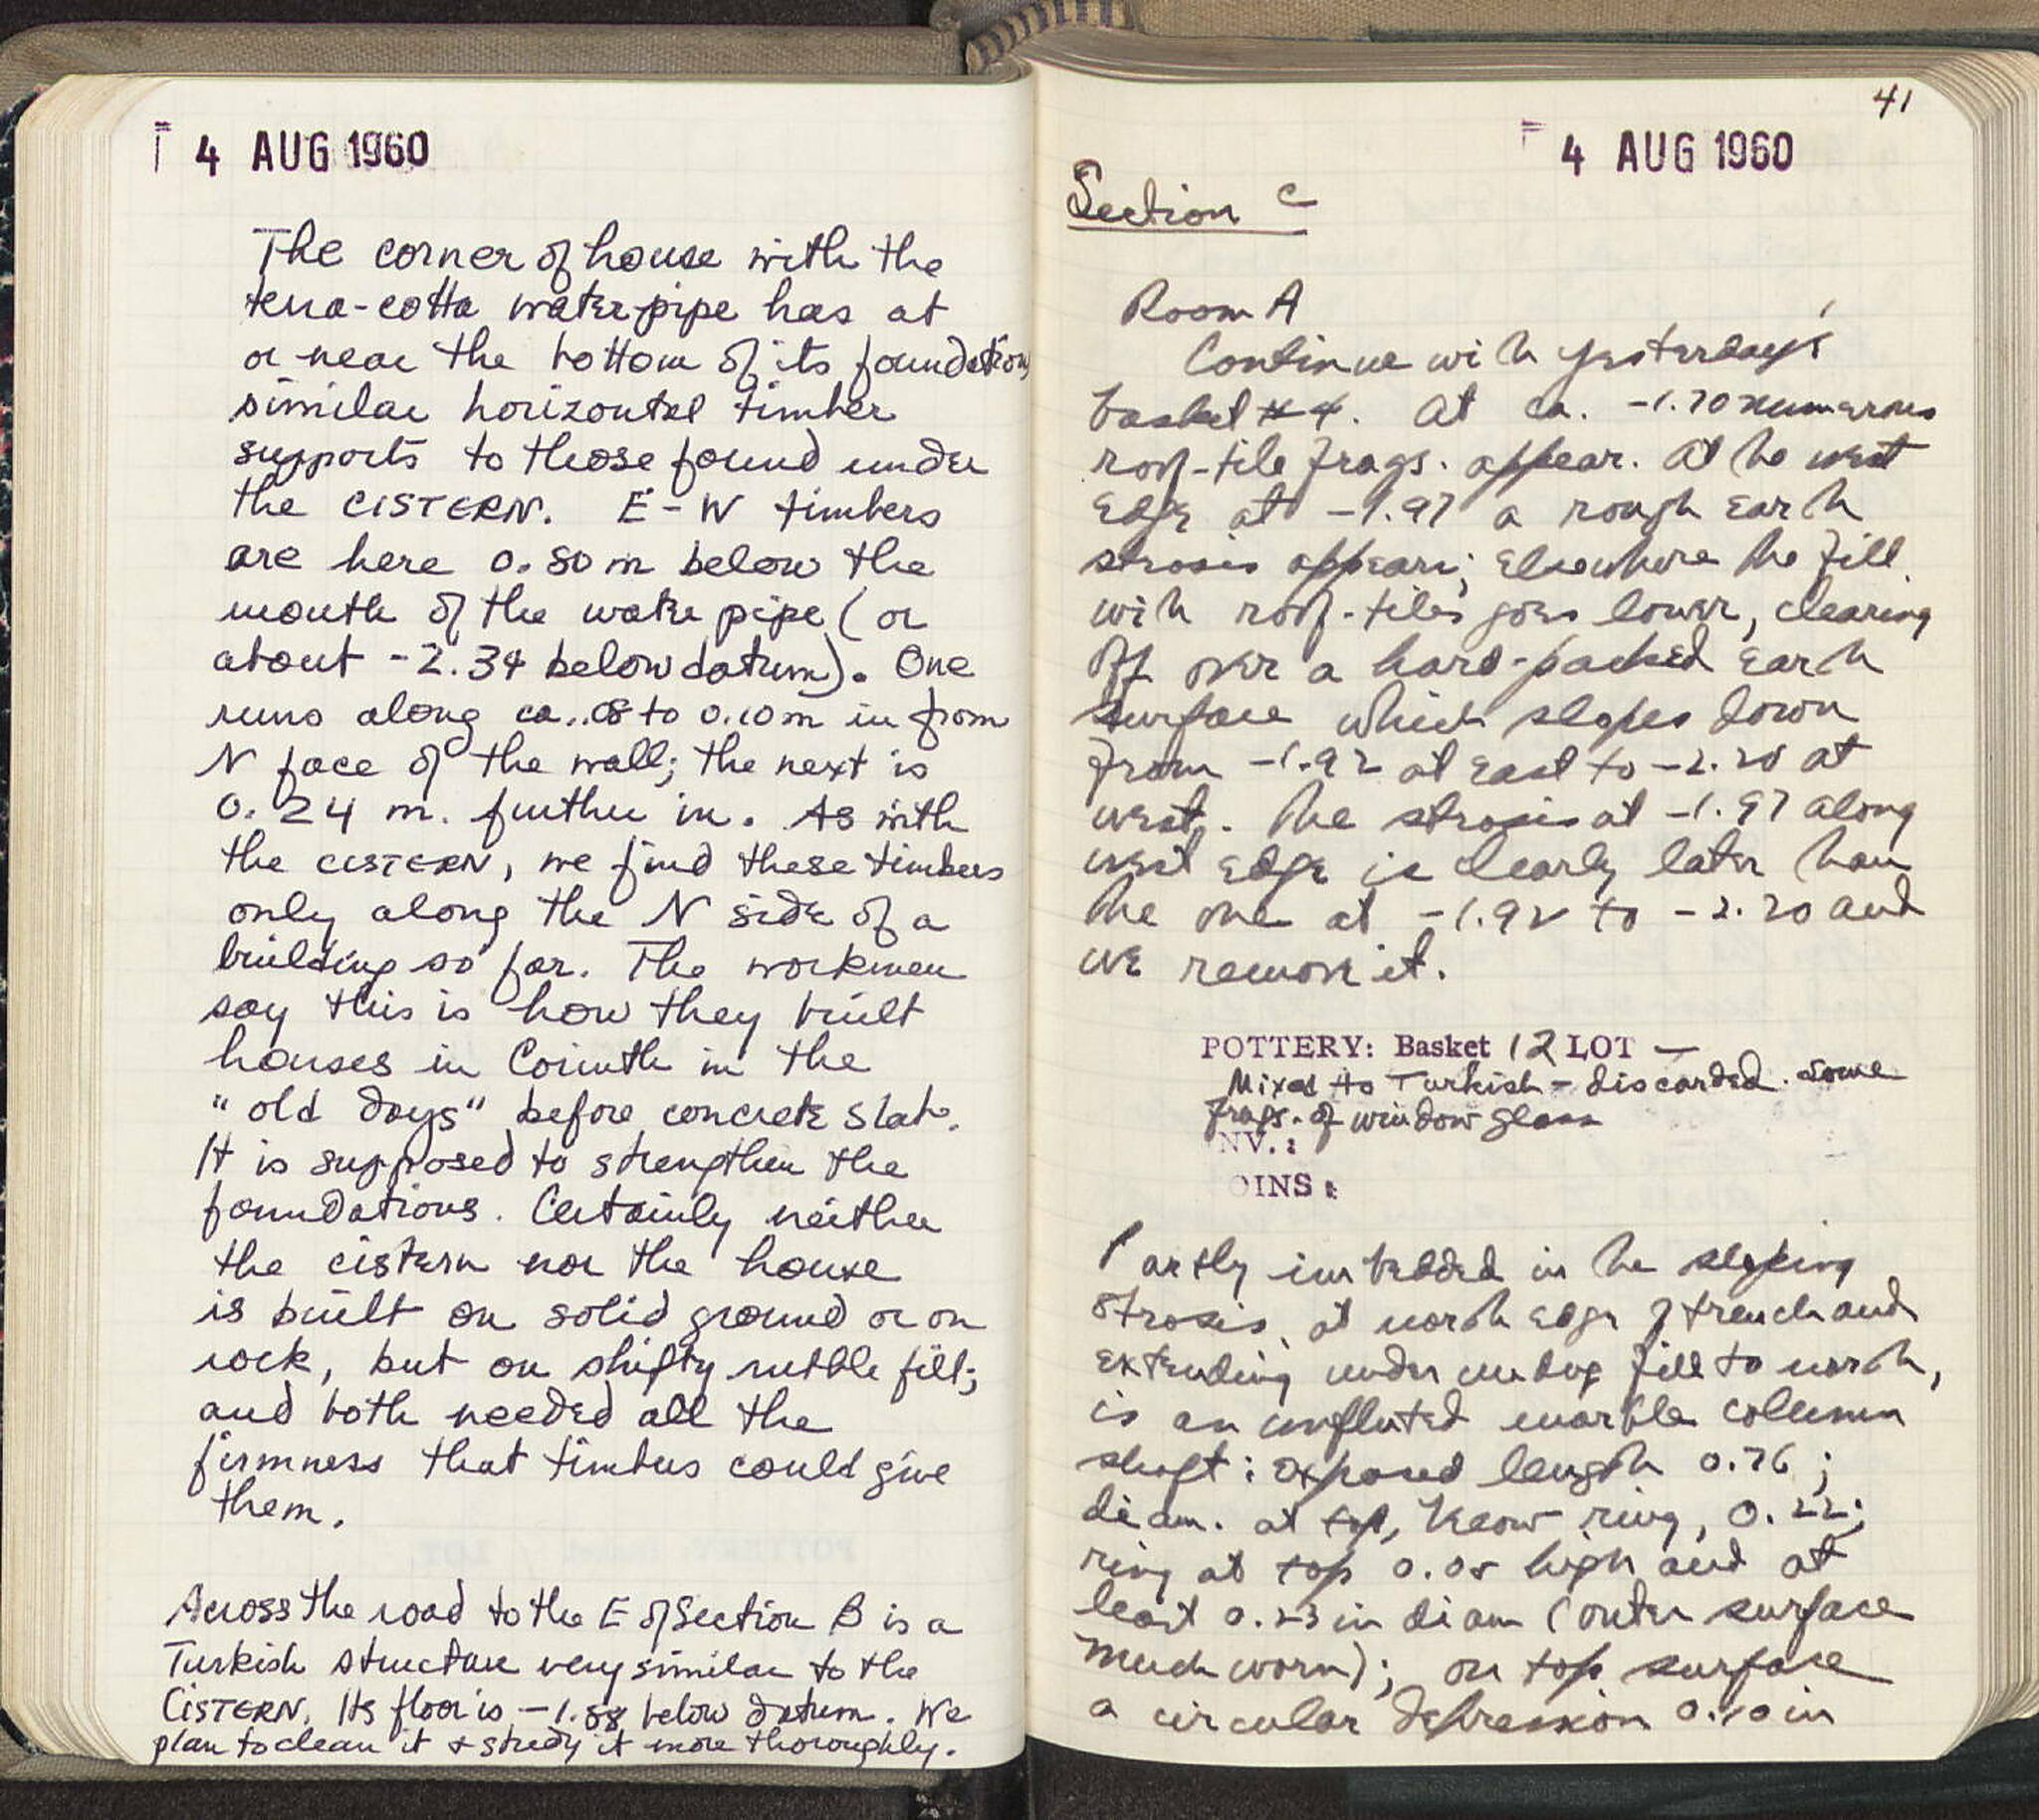 4 AUG 1960
The corner of house with the
terra-cotta water-pipe has at
or near the bottom of its foundations
similar horizontal timber
supports to those found under
the CISTERN. E-W timbers
are here 0.80 m below the
mouth of the water pipe (or
about -2.34 below datum). One
runs along ca. .08 to 0.10 m in from
N face of the wall; the next is
0.24 m. further in. As with
the CISTERN, we find these timbers
only along the N side of a
building so far. The workmen
say this is how they built
houses in Corinth in the
"old days" before concrete slab.
It is supposed to strengthen the
foundations. Certainly neither
the cistern nor the house
is built on solid ground or on
rock, but on shifty rubble fill;
and both needed all the
firmness that timbers could give
them.
Across the road to the E of Section B is a
Turkish structure very similar to the
CISTERN. Its floor is -1.58 below datum. We
plan to clean it & study it more thoroughly.
41
4 AUG 1960
Section C
Room A
Continue with yesterday's
basket #4. At ca. -1.70 numerous
roof-tile frags. appear. At the west
edge at -1.97 a rough earth
strosis appears; elsewhere the fill
with roof-tiles goes lower, clearing
off over a hard-packed earth
surface which slopes down
from -1.92 at east to -2.20 at
west. The strosis at -1.97 along
west edge is clearly later than
the one at -1.92 to -2.20 and
we remove it.
POTTERY: Basket 12 LOT —
Mixed to Turkish - discarded. Some
frags. of window glass
NV.:
OINS:
Partly imbedded in the sloping
strosis, at north edge of trench and
extending under undug fill to north,
is an unfluted marble column
shaft: exposed length 0.76;
diam. at top, below ring, 0.22;
ring at top 0.05 high and at
least 0.23 in diam (outer surface
much worn); on top surface
a circular depression 0.10 in